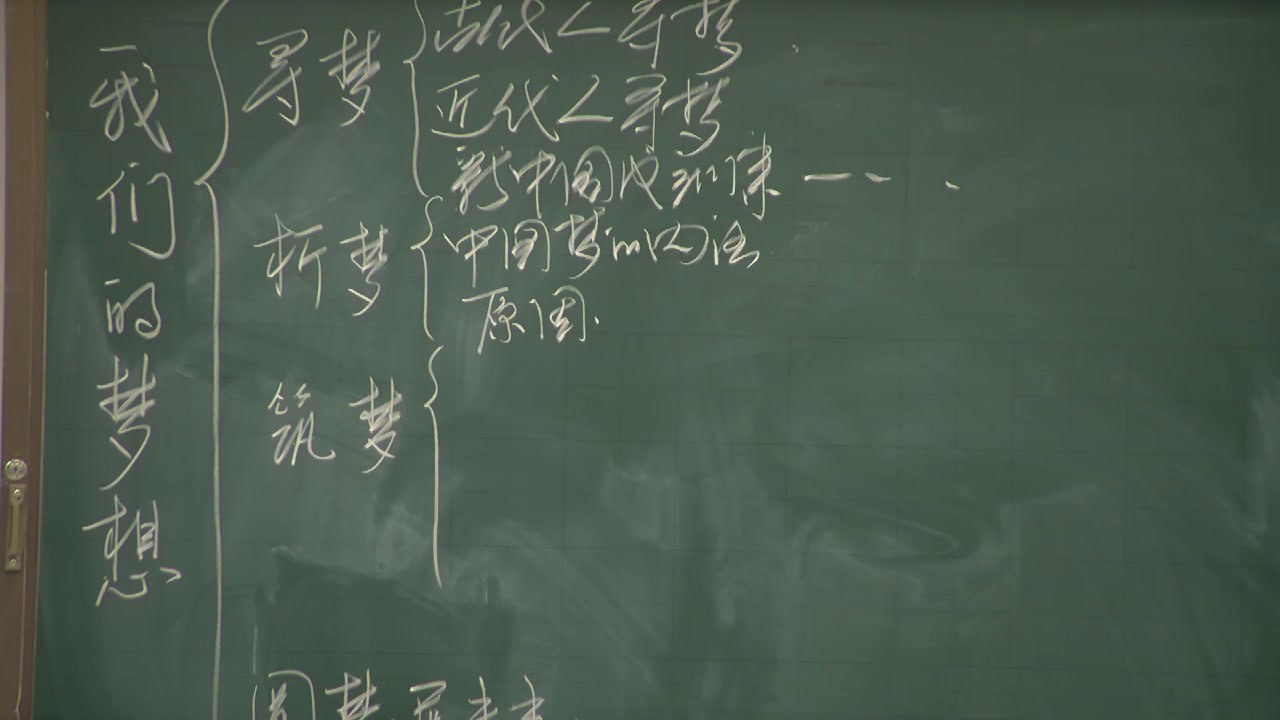 我们的梦想
寻梦
古代人寻梦
近代人寻梦
新中国成立以来——
析梦
中国梦的内涵
原因
筑梦
圆梦 展未来